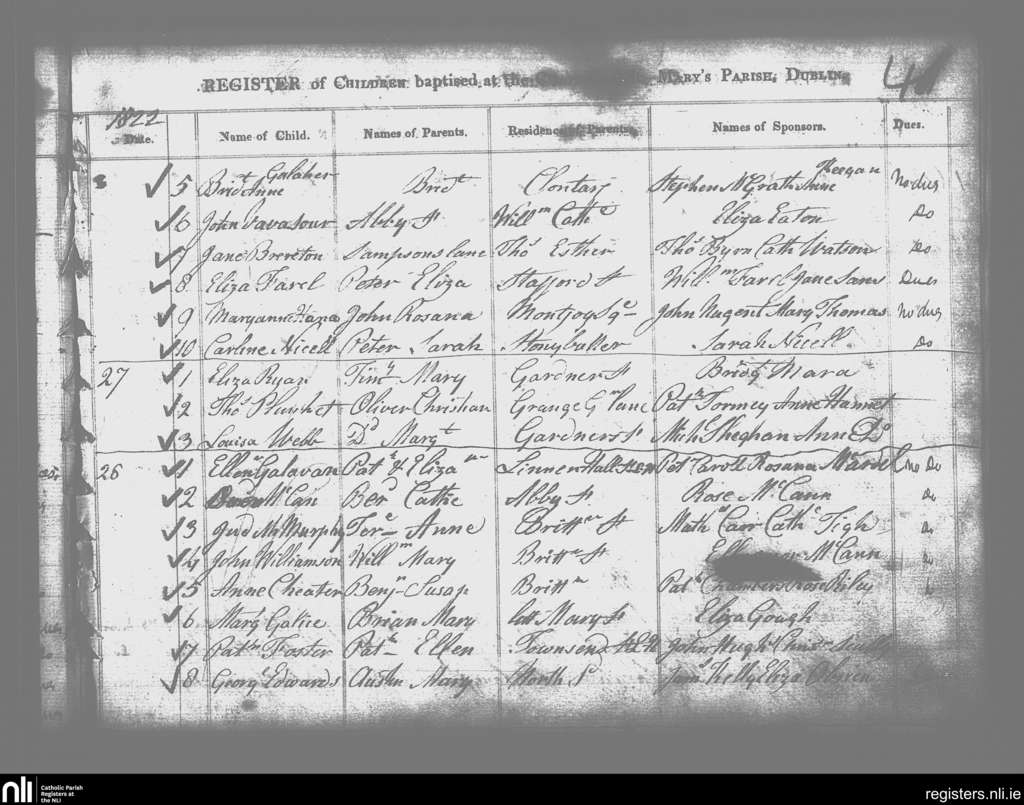 REGISTER of CHILDREN baptised at the MARY'S PARISH, DUBLIN,
1822
Date. Name of Child. Names of Parents. Residence of Parents. Names of Sponsors. Dues.
Galaher Keegan
5 Bridt Anne Bridt Clontarf Stephen McGrath Anne No dues
6 John Vavasour Abby St Willm Cathe Eliza Eaton Do
7 Jane Brereton Sampsons lane Thos Esther Thos Byrn Cath Watson Do
8 Eliza Farel Peter Eliza Stafford St Willm Farel Jane Dues
9 Maryanne John Rosana Montjoy Sqe John Nugent Mary Thomas No dues
10 Carline Nicell Peter Sarah Stonybatter Sarah Nicell Do
27 1 Eliza Ryan Timy Mary Gardner St Bridgt Mara
2 Thos Plunket Oliver Christian Grange Gmn lane Patk Tormey Anne
3 Louisa Webb Dd Margt Gardners St Mich Sheghan Anne Do
26 1 Ellen Galavan Patk & Eliza Linnen Hall Pat Caroll Rosana no Do
2 McCan Berd Cathe Abby St Rose McCann Do
3 Murphy Tere Anne Brittn St Math Carr Cathe Tigh
4 John Williamson Willm Mary Brittn St McCann
5 Anne Cheater Benjn Susan Brittn Patk Chambers Rose Riley
6 Margt Brian Mary Mary St Eliza Gough
7 Patk Foster Patk Ellen Townsend John Hugh
8 Georg Edwards Austin Mary North St Jams Kelly Eliza
nli
Catholic Parish
Registers at
the NLI
registers.nli.ie